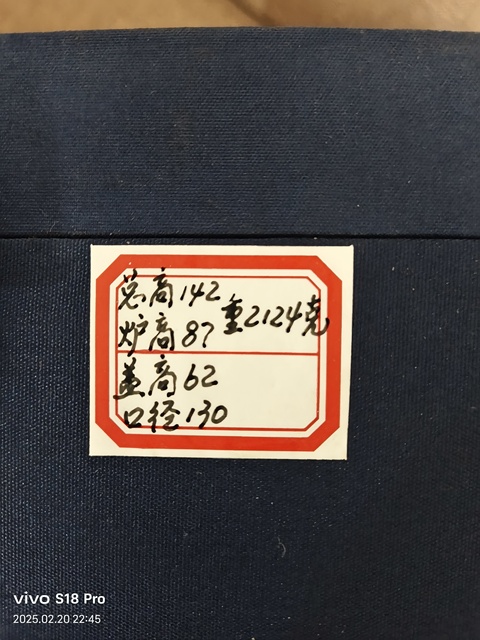 总高142
重2124克
炉高87
盖高62
口径130
vivo S18 Pro
2025.02.20 22:45